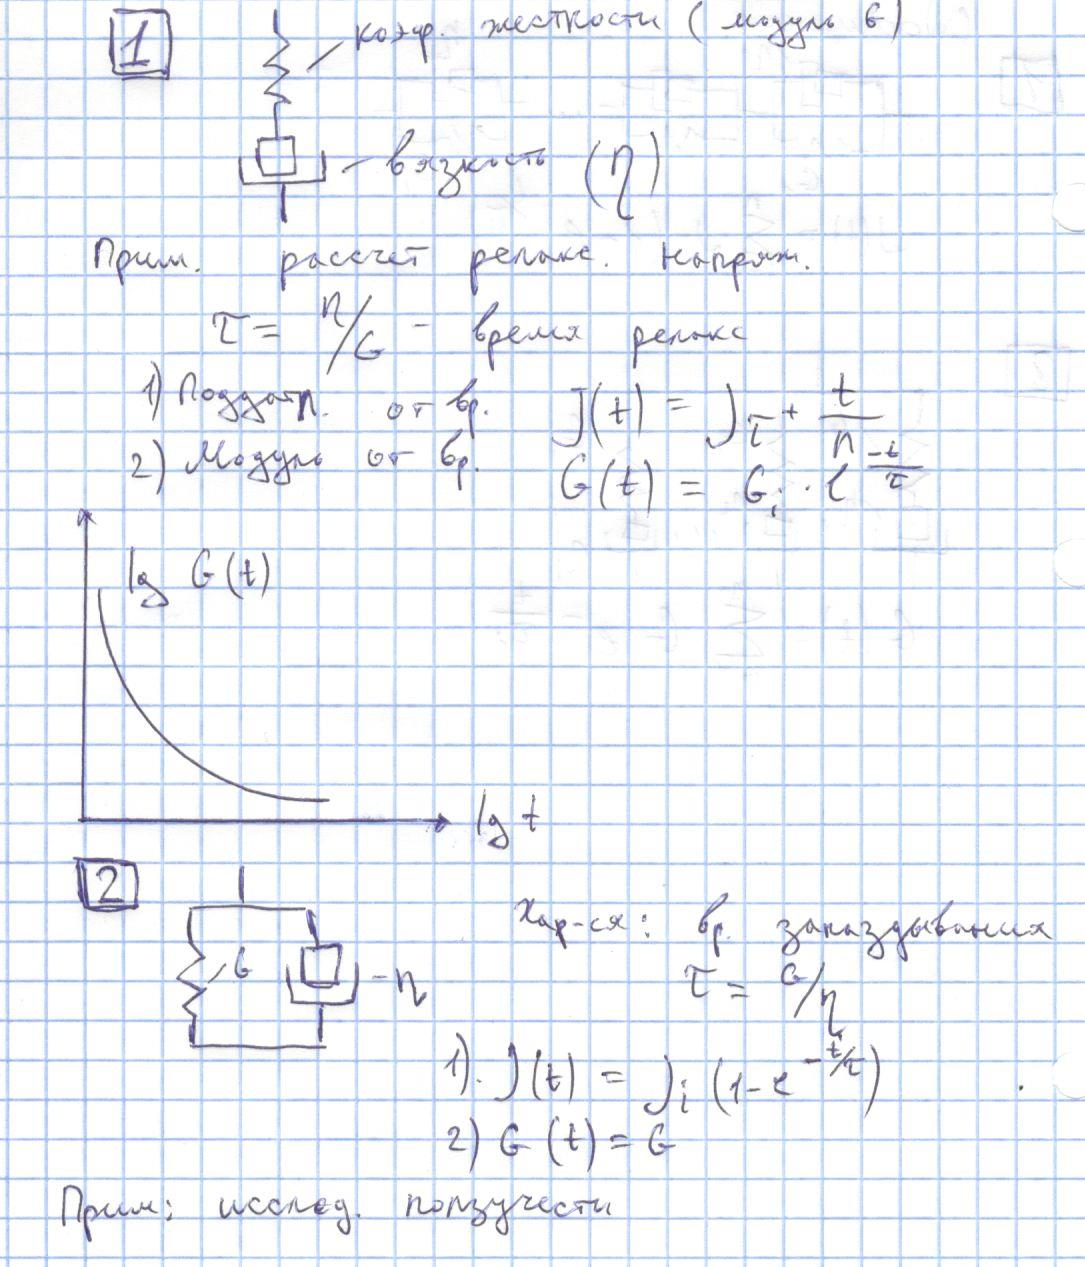 1
коэф. жесткости (модуль G)
вязкость (η)
Прим. рассчет релакс. напряж.
τ = η/G - время релакс
1) Податл. от вр. J(t) = J_τ + t/η
2) Модуль от вр. G(t) = G_i · e^(-t/τ)
lg G(t)
lg t
2
G
- η
Хар-ся: вр. запаздывания
τ = G/η
1). J(t) = J_i (1 - e^(-t/τ))
2) G(t) = G
Прим: исслед. ползучести